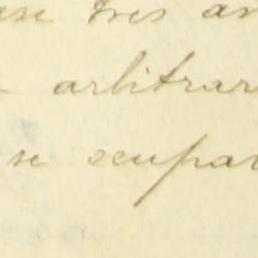 ase tres an
arbitrar
se ocupa